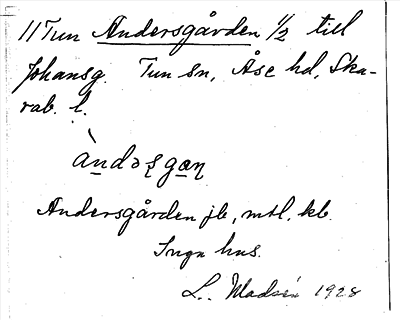 11 Tun Andersgården 1/2 till
Johansg. Tun sn, Åse hd, Ska-
rab. l.
àndəʂgæɳ
Andersgården jb, mtl, kb.
Inga hus.
L. Madsén 1928